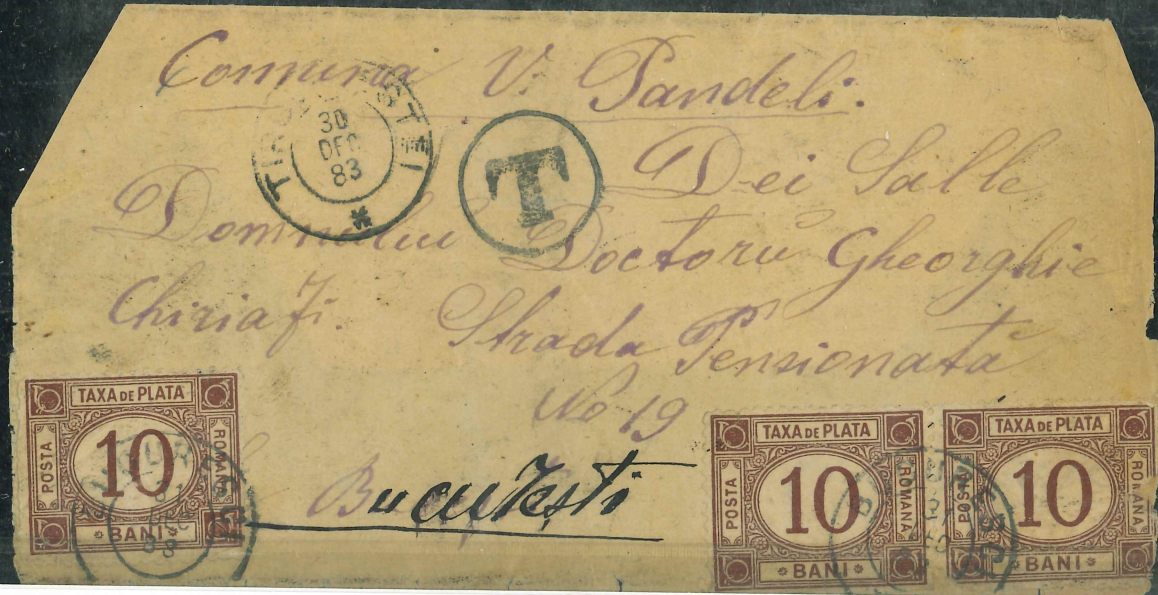 Comuna V. Pandeli.
TIRGU
ESTEI
30
DEC
83
T
Dei Salle
Domnului Doctoru Gheorghie
Strada Pensionată
No 19
Bucuresti
TAXA DE PLATA
POSTA
10
ROMANA
BANI
TAXA DE PLATA
POSTA
10
ROMANA
BANI
TAXA DE PLATA
POSTA
10
ROMANA
BANI
DEC
83